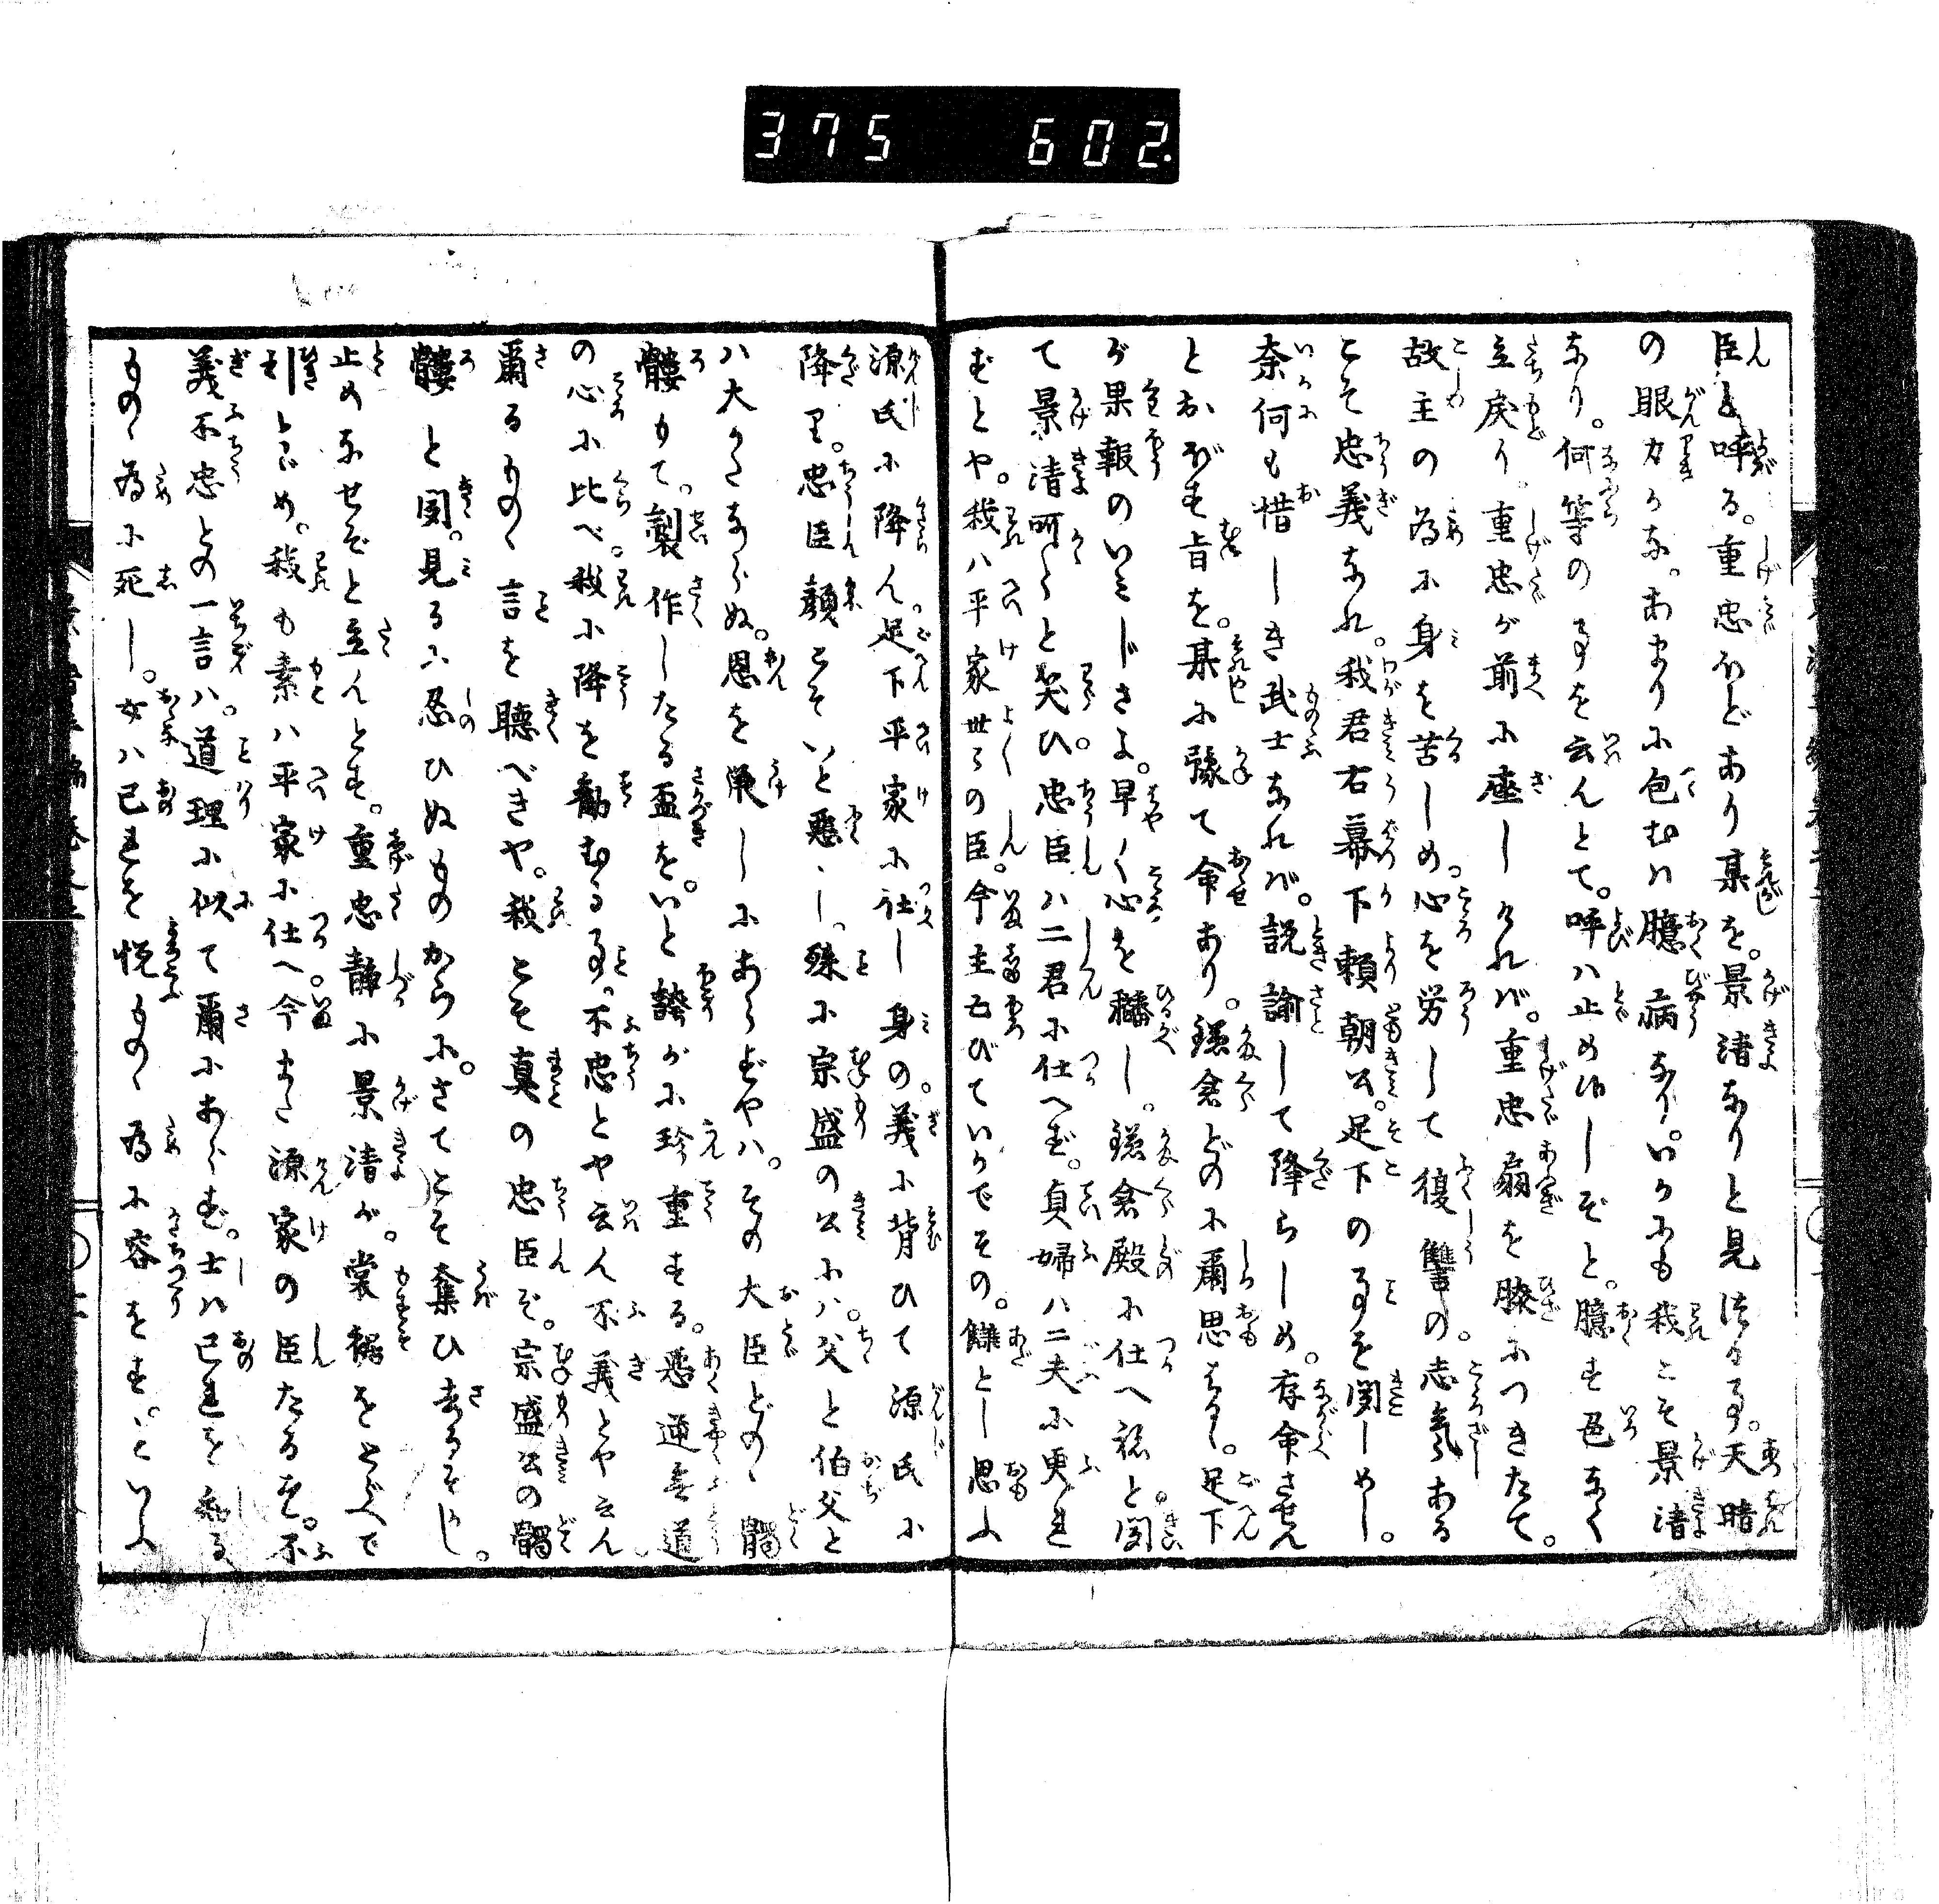 375 602.
臣と呼る。重忠ほどあり某を。景清なりと見つる事。天晴
の眼力かな。あまりに包むは臆病なり。いかにも我こそ景清
なり。何等の事を云んとて。呼は止め給しぞと。臆す色なく
立戻り。重忠が前に座しければ。重忠扇を膝につきたて。
故主の為に身を苦しめ。心を労して復讐の。志気ある
こそ忠義なれ。我君右幕下頼朝公。足下の事を聞しめし。
奈何も惜しき武士なれば。説諭して降らしめ。存命させん
とおぼす旨を。某に予て命あり。鎌倉どのに爾思はるゝ。足下
が果報のいみじさよ。早く心を飜し。鎌倉殿に仕へ祢と。聞
て景清呵〻と笑ひ。忠臣は二君に仕へず。貞婦は二夫に更れ
むとや。我は平家世〻の臣。今主亡びていかでその。讎とし思ふ
源氏に降らん。足下平家に仕し身の。義に背ひて源氏に
降り。忠臣顔こそいと悪し。殊に宗盛の公には。父と伯父と
は大かたならぬ。恩を承しにあらずやは。その大臣どのゝ髑
髏もて。製作したる盃を。いと誇りかに珍重する。悪逆無道
の心に比べ。我に降を勧むる事。不忠とや云ん不義とや云ん。
爾るものゝ言を聴べきや。我こそ真の忠臣ぞ。宗盛公の髑
髏と聞。見るに忍ひぬものからに。さてこそ奪ひ去るぞかし。
止めなせぞと立んとす。重忠静に景清が。裳裾をとらへて
引とゞめ。我も素は平家に仕へ。今また源家の臣たるを。不
義不忠との一言は。道理に似て爾にあらず。士は己れを知る
ものゝ為に死し。女は己れを悦ものゝ為に容をす。といふ